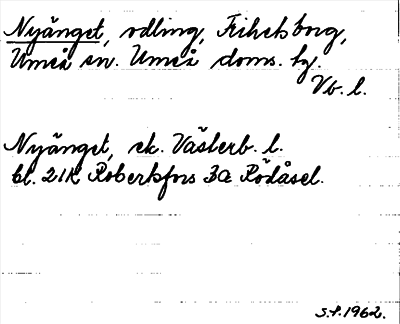 Nyänget, odling, Frihetsborg,
Umeå sn. Umeå doms. hg.
Vb. l.
Nyänget, ek. Västerb. l.
bl. 21K Robertsfors 3a Rödåsel.
S.f. 1962.